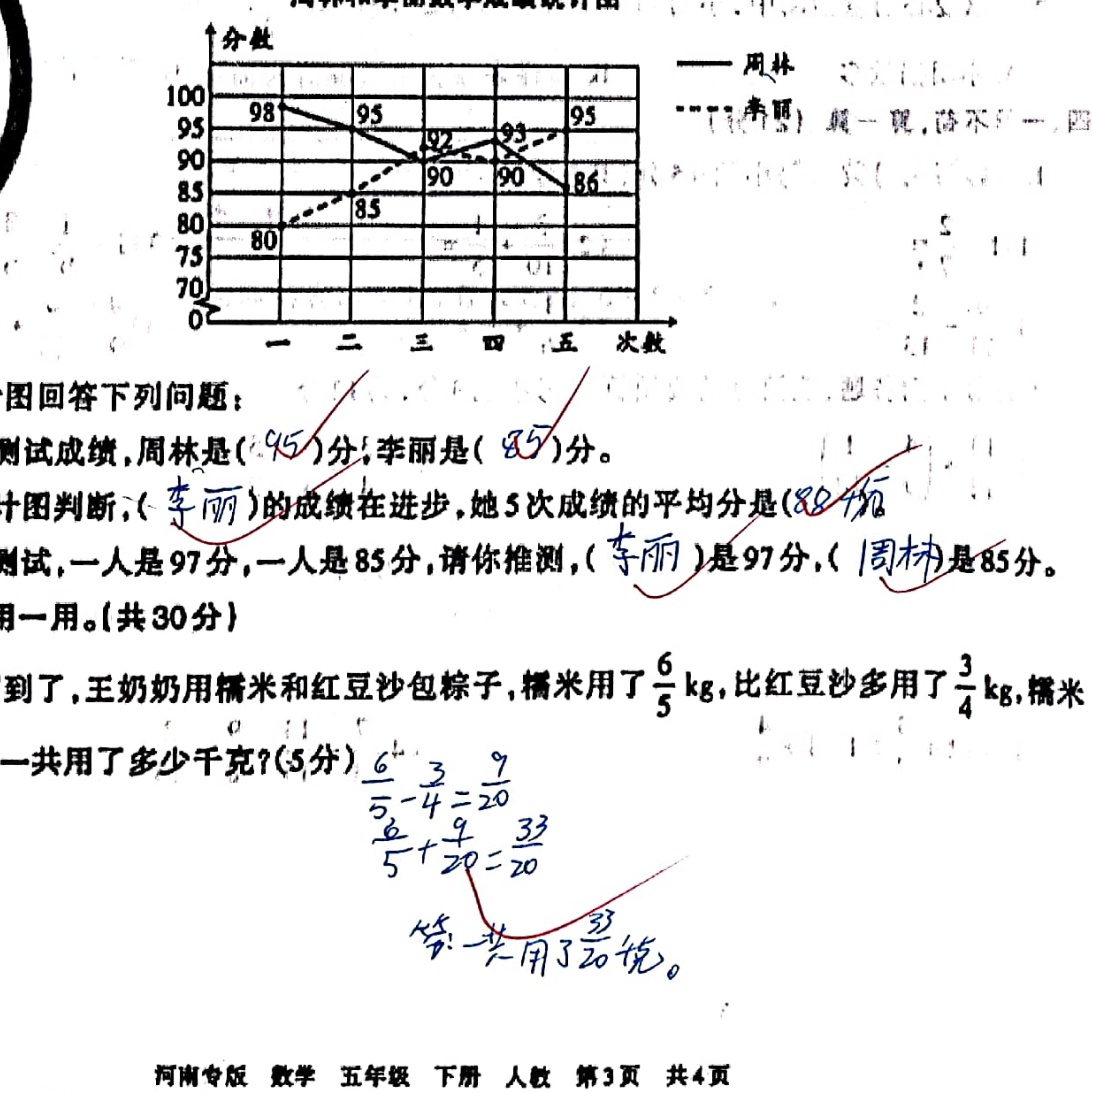 周林和李丽数学成绩统计图
分数
周林
李丽
100
95
90
85
80
75
70
0
98 95 92 93 95
90 90 86
80 85
一 二 三 四 五 次数
图回答下列问题:
测试成绩,周林是(95)分,李丽是(85)分。
计图判断,(李丽)的成绩在进步,她5次成绩的平均分是(88.4
测试,一人是97分,一人是85分,请你推测,(李丽)是97分,(周林)是85分。
用一用。(共30分)
到了,王奶奶用糯米和红豆沙包粽子,糯米用了6/5 kg,比红豆沙多用了3/4 kg,糯米
一共用了多少千克?(5分)
6/5-3/4=9/20
6/5+9/20=33/20
答:一共用了33/20千克。
河南专版 数学 五年级 下册 人教 第3页 共4页